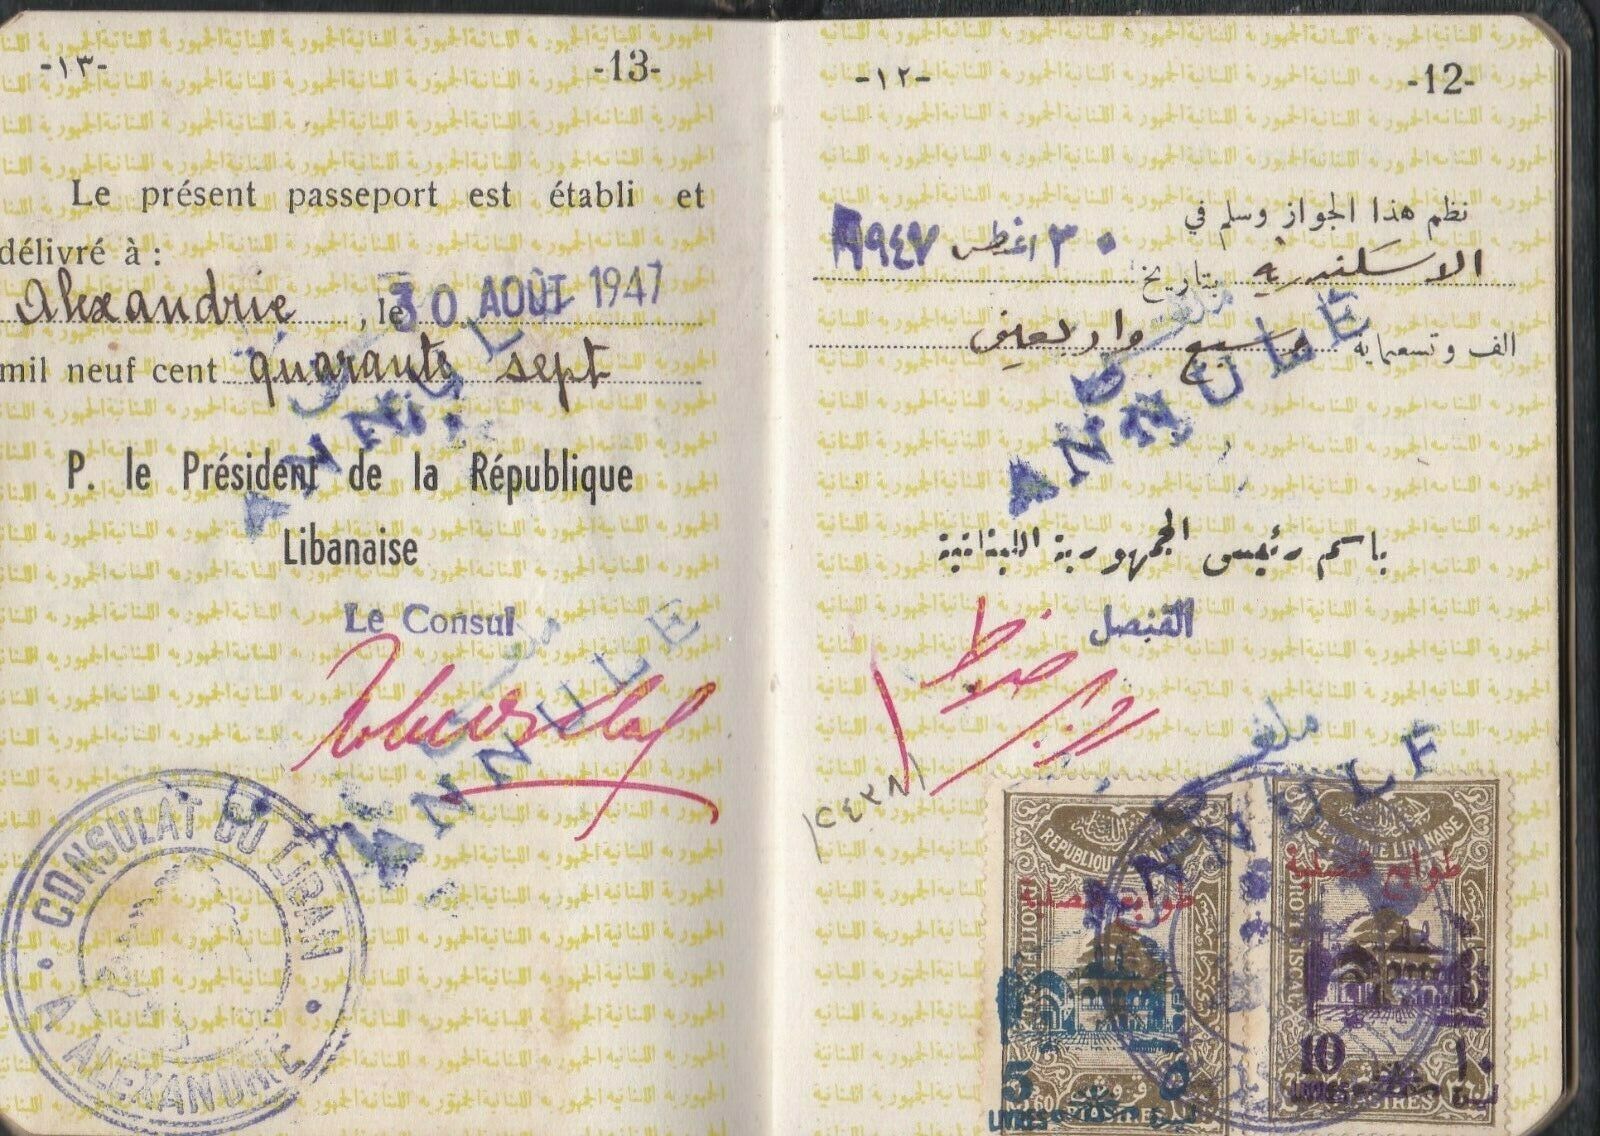 -١٣- -13-
Le présent passeport est établi et
délivré à :
Alexandrie, le 30 AOÛT 1947
mil neuf cent quarante sept
P. le Président de la République
Libanaise
Le Consul
ANNULÉ
ANNULÉ
CONSULAT DU LIBAN
A ALEXANDRIE
-١٢- -12-
نظم هذا الجواز وسلم في
الاسكندرية بتاريخ ٣٠ اغسطس ١٩٤٧
الف وتسعماية وسبع واربعين
ANNULÉ
باسم رئيس الجمهورية اللبنانية
القنصل
ملغى
ANNULÉ
RÉPUBLIQUE LIBANAISE
طوابع قنصلية
DROIT FISCAL
5 ٥
LIVRES
60 PIASTRES
RÉPUBLIQUE LIBANAISE
طوابع قنصلية
DROIT FISCAL
10 ١٠
LIVRES
PIASTRES